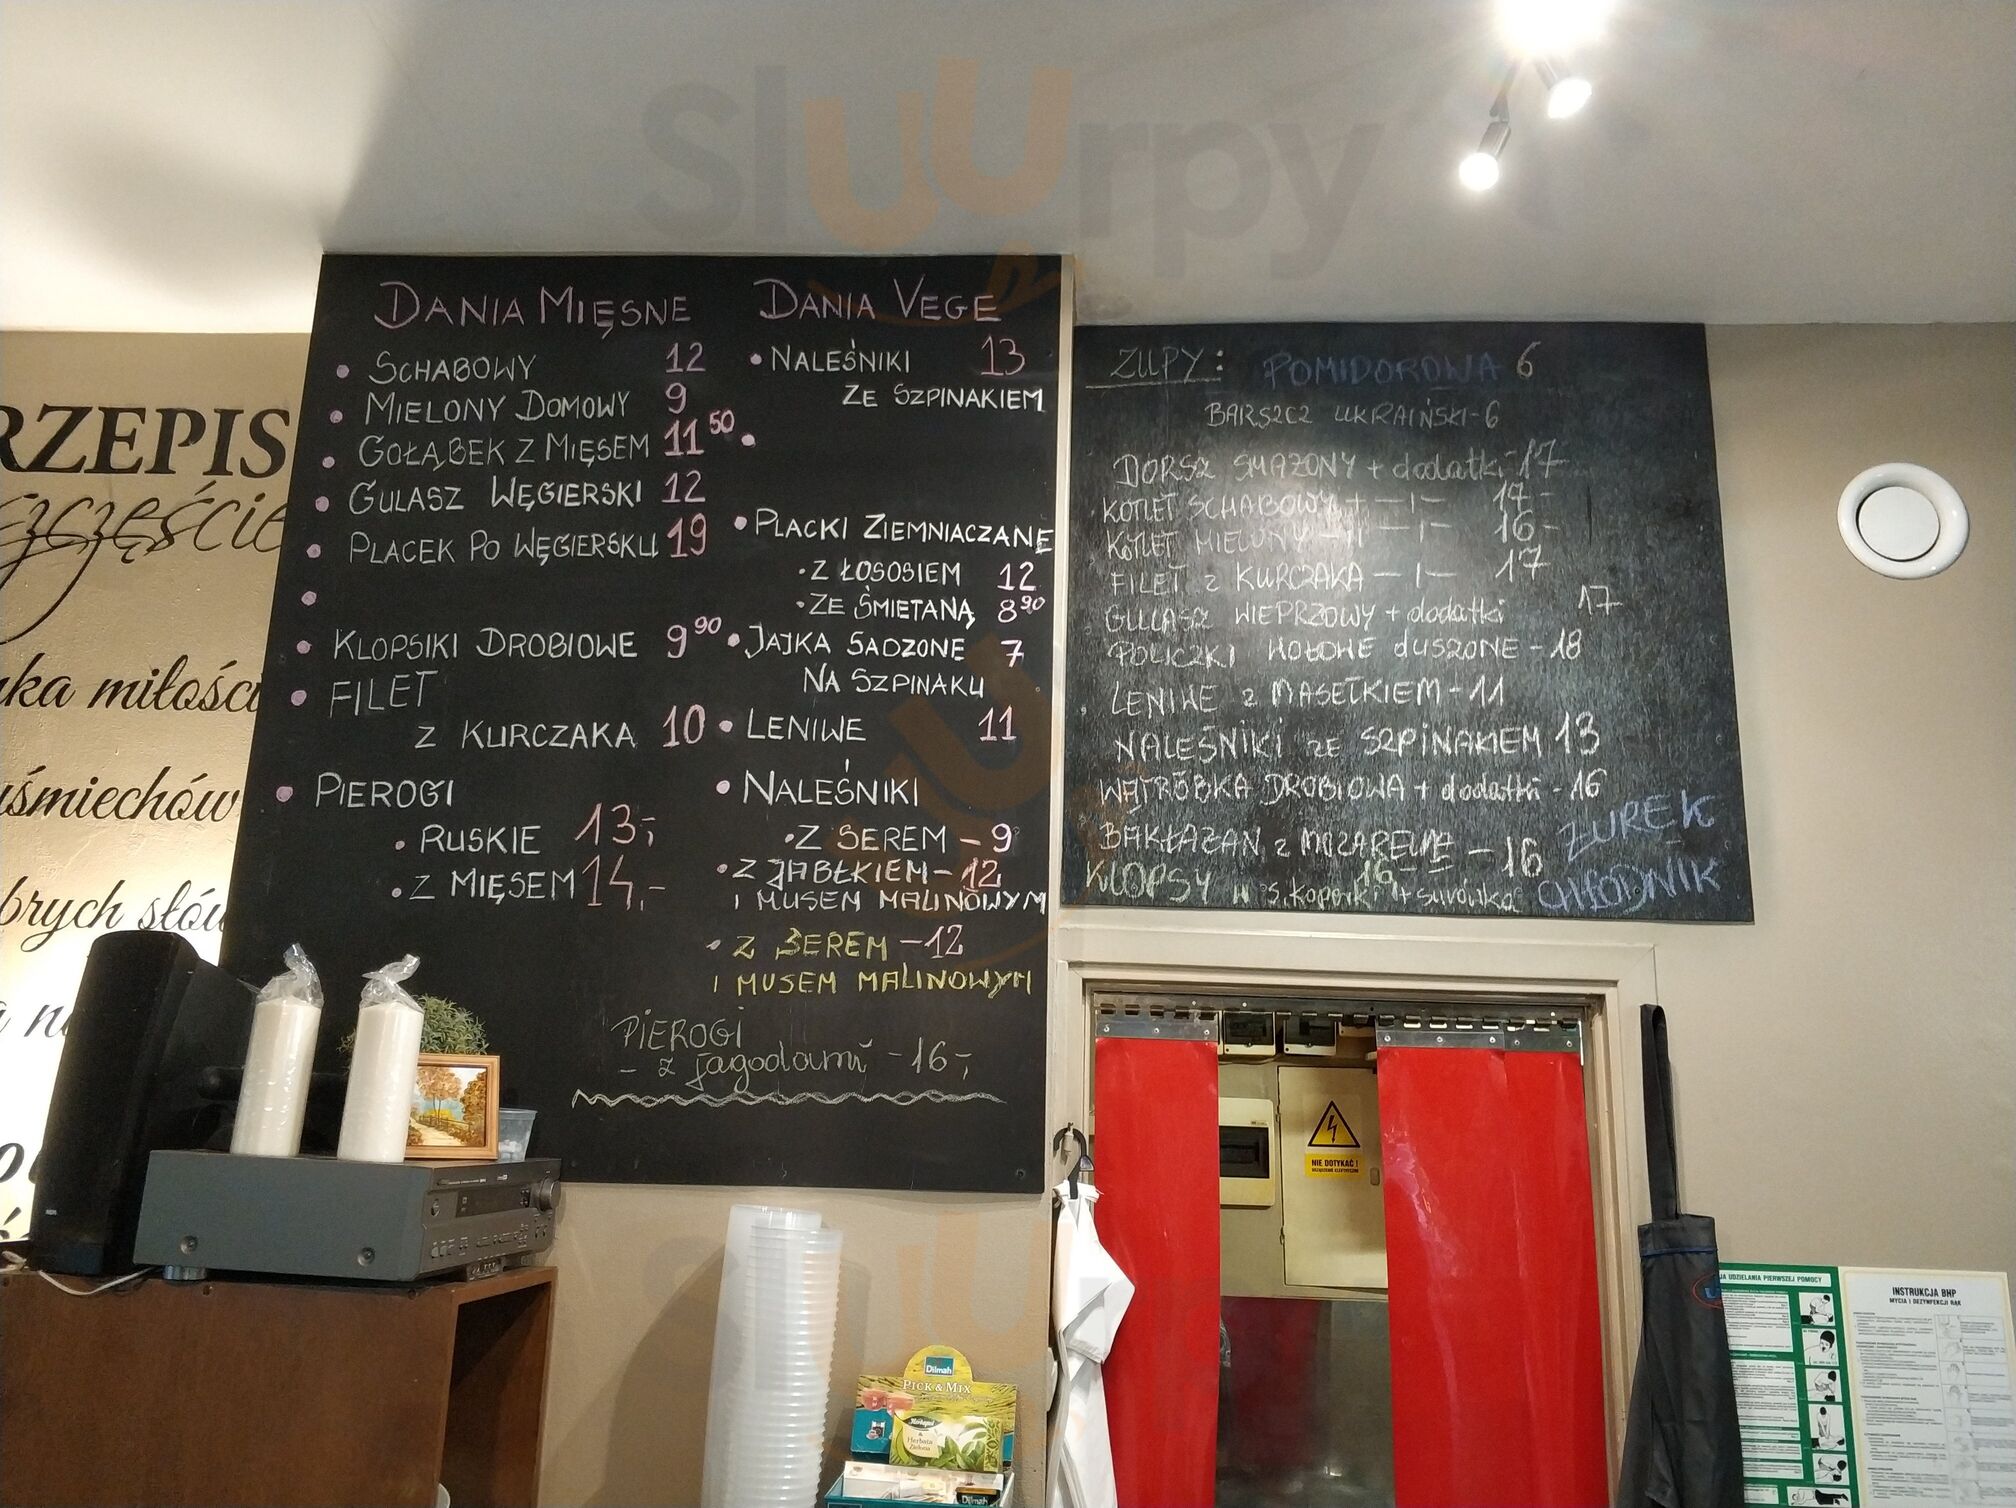 Sluurpy
DANIA MIĘSNE
SCHABOWY 12
MIELONY DOMOWY 9
GOŁĄBEK Z MIĘSEM 11 50
GULASZ WĘGIERSKI 12
PLACEK PO WĘGIERSKU 19
KLOPSIKI DROBIOWE 9 90
FILET
Z KURCZAKA 10
PIEROGI
RUSKIE 13,-
Z MIĘSEM 14,-
DANIA VEGE
NALEŚNIKI 13
ZE SZPINAKIEM
PLACKI ZIEMNIACZANE
Z ŁOSOSIEM 12
ZE ŚMIETANĄ 8 90
JAJKA SADZONE 7
NA SZPINAKU
LENIWE 11
NALEŚNIKI
Z SEREM - 9
Z JABŁKIEM - 12
I MUSEM MALINOWYM
Z SEREM - 12
I MUSEM MALINOWYM
PIEROGI
- z jagodami - 16,-
ZUPY: POMIDOROWA 6
BARSZCZ UKRAIŃSKI - 6
DORSZ SMAŻONY + dodatki 17
KOTLET SCHABOWY + - I - 17 -
KOTLET MIELONY - II - I - 16 -
FILET Z KURCZAKA - I - 17
GULASZ WIEPRZOWY + dodatki 17
POLICZKI WOŁOWE DUSZONE - 18
LENIWE Z MASEŁKIEM - 11
NALEŚNIKI ZE SZPINAKIEM 13
WĄTRÓBKA DROBIOWA + dodatki - 16
BAKŁAŻAN Z - 16
ŻUREK
KLOPSY W S. + surówka 16 -
CHŁODNIK
RZEPIS
szczęście
miłości
uśmiechów
NIE DOTYKAĆ !
URZĄDZENIE ELEKTRYCZNE
UDZIELANIA PIERWSZEJ POMOCY
INSTRUKCJA BHP
MYCIA I DEZYNFEKCJI RĄK
Dilmah
PICK & MIX
Herbapol
Herbata
Zielona
Dilmah